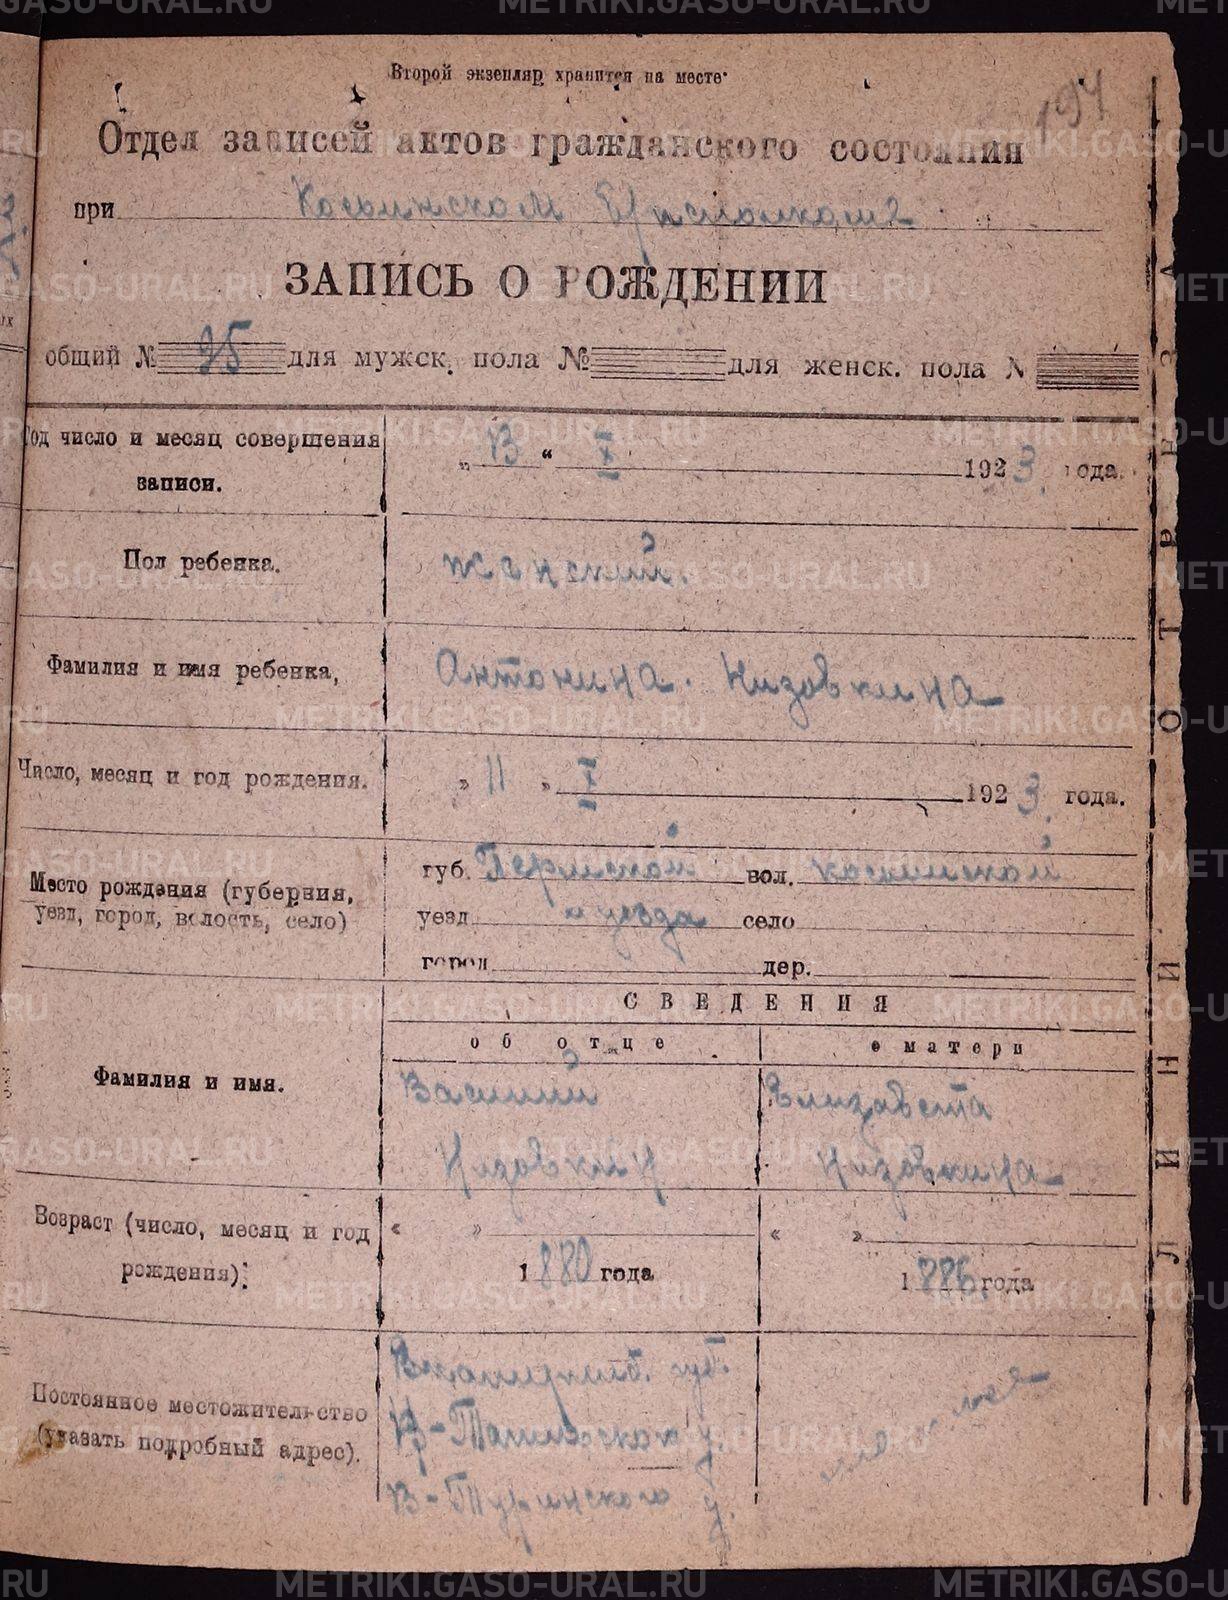 Второй экземпляр хранится на месте
194
Отдел записей актов гражданского состояния
при Косьинском
ЗАПИСЬ О РОЖДЕНИИ
общий № 25 для мужск. пола № для женск. пола №
Год число и месяц совершения записи. „13“ X 1923 года.
Пол ребенка. женский.
Фамилия и имя ребенка, Антонина. Низовкина
Число, месяц и год рождения. „11„ X 1923 года.
Место рождения (губерния, уезд, город, волость, село)
губ. Пермской вол.
уезд и уезда село
город дер.
СВЕДЕНИЯ
об отце о матери
Фамилия и имя. Василий Низовкин Елизавета Низовкина
Возраст (число, месяц и год рождения): « » 1880 года « » 1886 года
Постоянное местожительство (указать подробный адрес).
губ.
у.
В-Туринского у.
ЛИНИЙ ОТРЫВ
METRIKI.GASO-URAL.RU